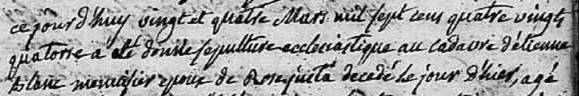 ce jour d'huy vingt et quatre Mars mil sept cens quatre vingts
quatorse a eté donnée sepulture eccleciastique au cadavre d'etienne
blanc menuisier epoux de Rose justa decedé le jour d'hier, agé